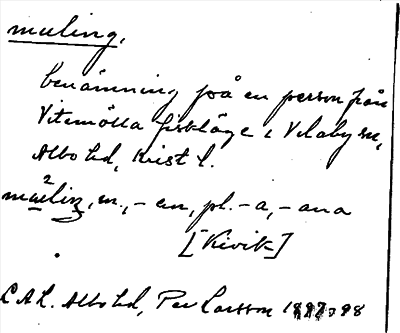 muling,
benämning på en person från
Vitemölla fiskläge i Vitaby sn,
Albo hd, Krist l.
mu²liŋ, m., – en, pl. – a, – ana
[Kivik]
L.A.L. Albo hd, Per Larsson 1897-98